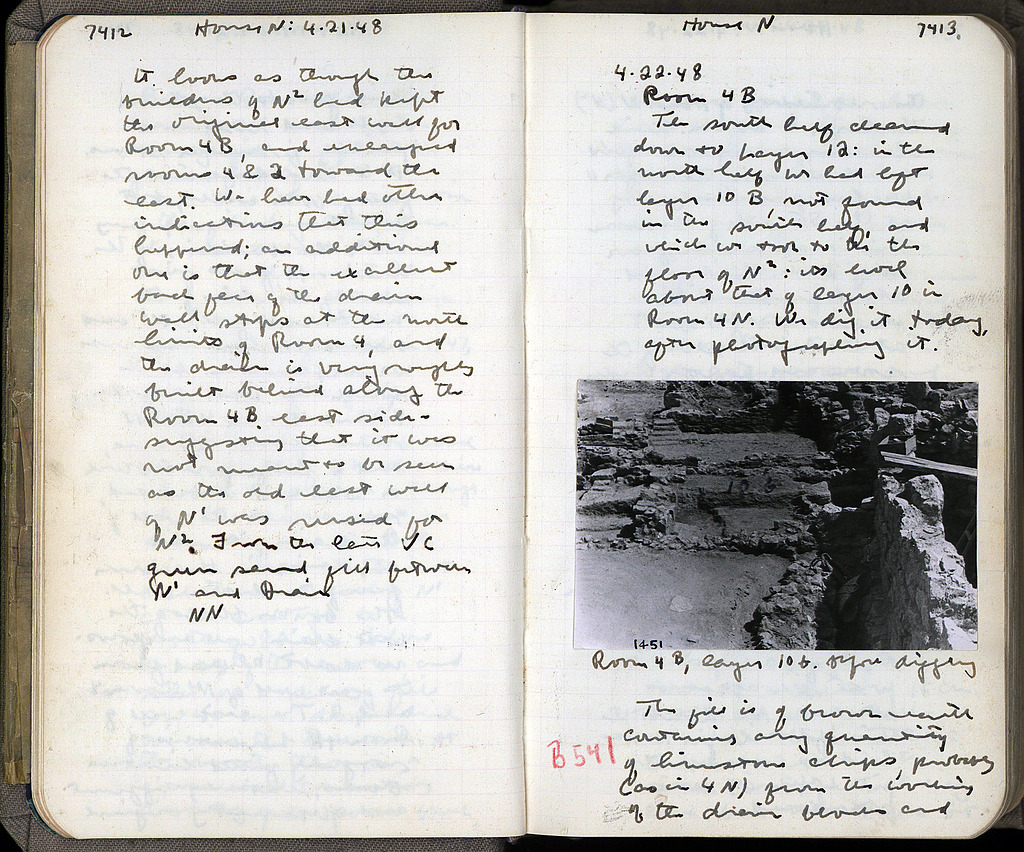 7412 House N: 4.21.48
It looks as though the
builders of N² had kept
the original east wall for
Room 4B, and enlarged
rooms 4 & 2 toward the
east. We have had other
indications that this
happened; an additional
one is that the excellent
back face of the drain
wall stops at the north
limits of Room 4, and
the drain is very roughly
built behind along the
Room 4B east side –
suggesting that it was
not meant to be seen
as the old east wall
of N' was reused for
N². From the late VC
green sand fill between
N' and Drain
NN
House N 7413.
4.22.48
Room 4B
The south half cleaned
down to layer 12: in the
north half we had left
layer 10 B, not found
in the south half, and
which we took to be the
floor of N²: its level
about that of layer 10 in
Room 4N. We dig it today,
after photographing it.
1451
Room 4B, layer 10b. before digging
The fill is of brown earth
contains any quantity
B541
of limestone chips, probably
(as in 4N) from the working
of the drain blocks and